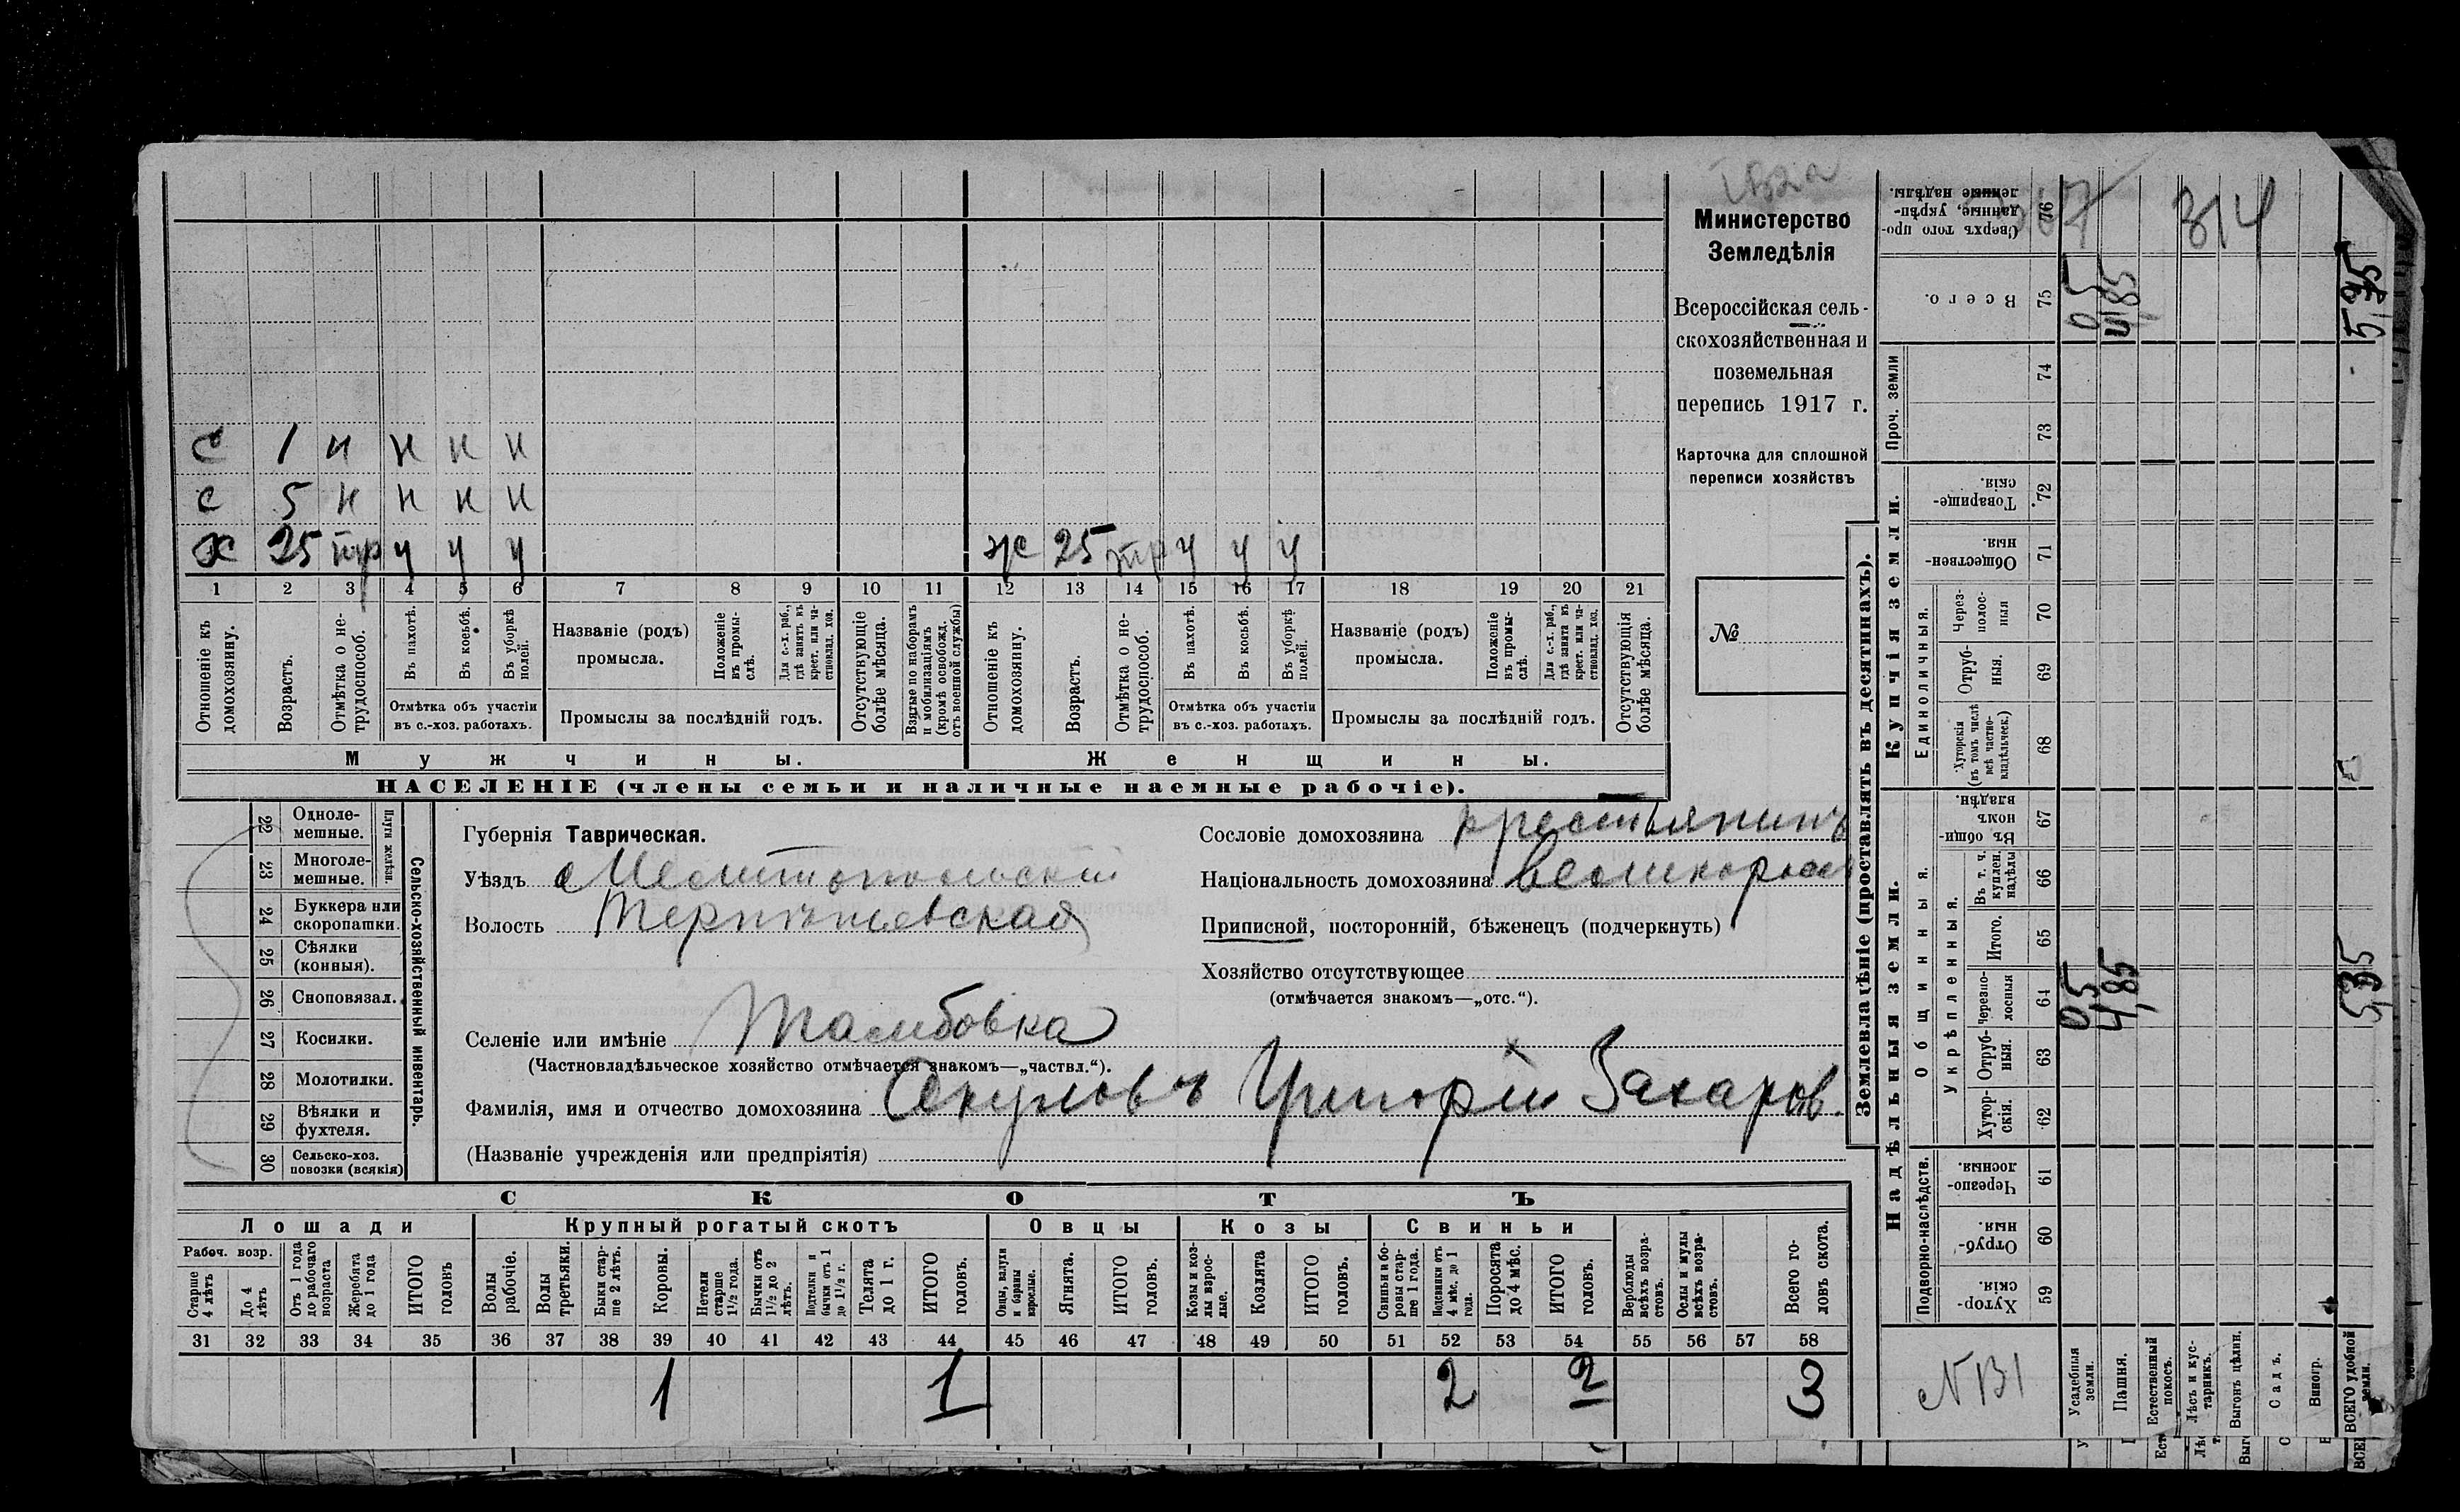 314
С 1 н н н н
С 5 н н н н
Х 25 тр у у у
ж 25 тр у у у
1 2 3 4 5 6 7 8 9 10 11 12 13 14 15 16 17 18 19 20 21
Отношеніе къ домохозяину.
Возрастъ.
Отмѣтка о нетрудоспособ.
Въ пахотѣ.
Въ косьбѣ.
Въ уборкѣ полей.
Отмѣтка объ участіи
въ с.-хоз. работахъ.
Названіе (родъ)
промысла.
Положеніе въ промыслѣ.
Для с.-х. раб., гдѣ занятъ въ крест. или частновлад. хоз.
Промыслы за послѣдній годъ.
Отсутствующіе болѣе мѣсяца.
Взятые по наборамъ и мобилизаціямъ (кромѣ освобожд. отъ военной службы)
Отношеніе къ домохозяину.
Возрастъ.
Отмѣтка о нетрудоспособ.
Въ пахотѣ.
Въ косьбѣ.
Въ уборкѣ полей.
Отмѣтка объ участіи
въ с.-хоз. работахъ.
Названіе (родъ)
промысла.
Положеніе въ промыслѣ.
Для с.-х. раб., гдѣ занята въ крест. или частновлад. хоз.
Промыслы за послѣдній годъ.
Отсутствующія болѣе мѣсяца.
Мужчины.
Женщины.
НАСЕЛЕНІЕ (члены семьи и наличные наемные рабочіе).
Министерство
Земледѣлія
Всероссійская сель-
скохозяйственная и
поземельная
перепись 1917 г.
Карточка для сплошной
переписи хозяйствъ
№
Сельско-хозяйственный инвентарь.
Плуги желѣзн.
22 Одноле-
мешные.
23 Многоле-
мешные.
24 Буккера или
скоропашки.
25 Сѣялки
(конныя).
26 Сноповязал.
27 Косилки.
28 Молотилки.
29 Вѣялки и
фухтеля.
30 Сельско-хоз.
повозки (всякія)
Губернія Таврическая.
Уѣздъ Мелитопольскій
Волость Терпѣньевская
Селеніе или имѣніе Тамбовка
(Частновладѣльческое хозяйство отмѣчается знакомъ—„частвл.“).
Фамилія, имя и отчество домохозяина Окуловъ Григорій Захаров.
(Названіе учрежденія или предпріятія)
Сословіе домохозяина крестьянинъ
Національность домохозяина великоросс
Приписной, посторонній, бѣженецъ (подчеркнуть)
Хозяйство отсутствующее
(отмѣчается знакомъ—„отс.“).
СКОТЪ
Лошади
Крупный рогатый скотъ
Овцы
Козы
Свиньи
Рабоч. возр.
Старше 4 лѣтъ
До 4 лѣтъ
Отъ 1 года до рабочаго возраста
Жеребята до 1 года
ИТОГО головъ
Волы рабочіе.
Волы третьяки.
Быки старше 2 лѣтъ.
Коровы.
Нетели старше 1½ года.
Бычки отъ 1½ до 2 лѣтъ.
Подтелки и бычки отъ 1 до 1½ г.
Телята до 1 г.
ИТОГО головъ.
Овцы, валухи и бараны взрослые.
Ягнята.
ИТОГО головъ.
Козы и козлы взрослые.
Козлята
ИТОГО головъ.
Свиньи и боровы старше 1 года.
Подсвинки отъ 4 мѣс. до 1 года.
Поросята до 4 мѣс.
ИТОГО головъ.
Верблюды всѣхъ возрастовъ.
Ослы и мулы всѣхъ возрастовъ.
Всего головъ скота.
31 32 33 34 35 36 37 38 39 40 41 42 43 44 45 46 47 48 49 50 51 52 53 54 55 56 57 58
1 1 2 2 3
Землевладѣніе (проставлять въ десятинахъ).
Надѣльныя земли.
Купчія земли.
Проч. земли
Подворно-наслѣдств.
Общинныя.
Укрѣпленныя.
Единоличныя.
Сверхъ того проданные, укрѣпленные надѣлы. 76
Всего. 75
74
73
Товарищескія. 72
Общественныя. 71
Черезполосныя 70
Отрубныя. 69
Хуторскія (въ томъ числѣ всѣ частновладѣльческ.) 68
Въ общинномъ владѣн. 67
Въ т. ч. куплен. надѣлы 66
Итого. 65
Черезполосныя 64
Отрубныя. 63
Хуторскія. 62
Черезполосныя. 61
Отрубныя. 60
Хуторскія. 59
05 4,85 5,35
05 4,85 5,35
NB1
Усадебныя земли.
Пашня.
Естественный покосъ.
Лѣсъ и кустарникъ.
Выгонъ цѣлин.
Садъ.
Виногр.
ВСЕГО удобной земли.